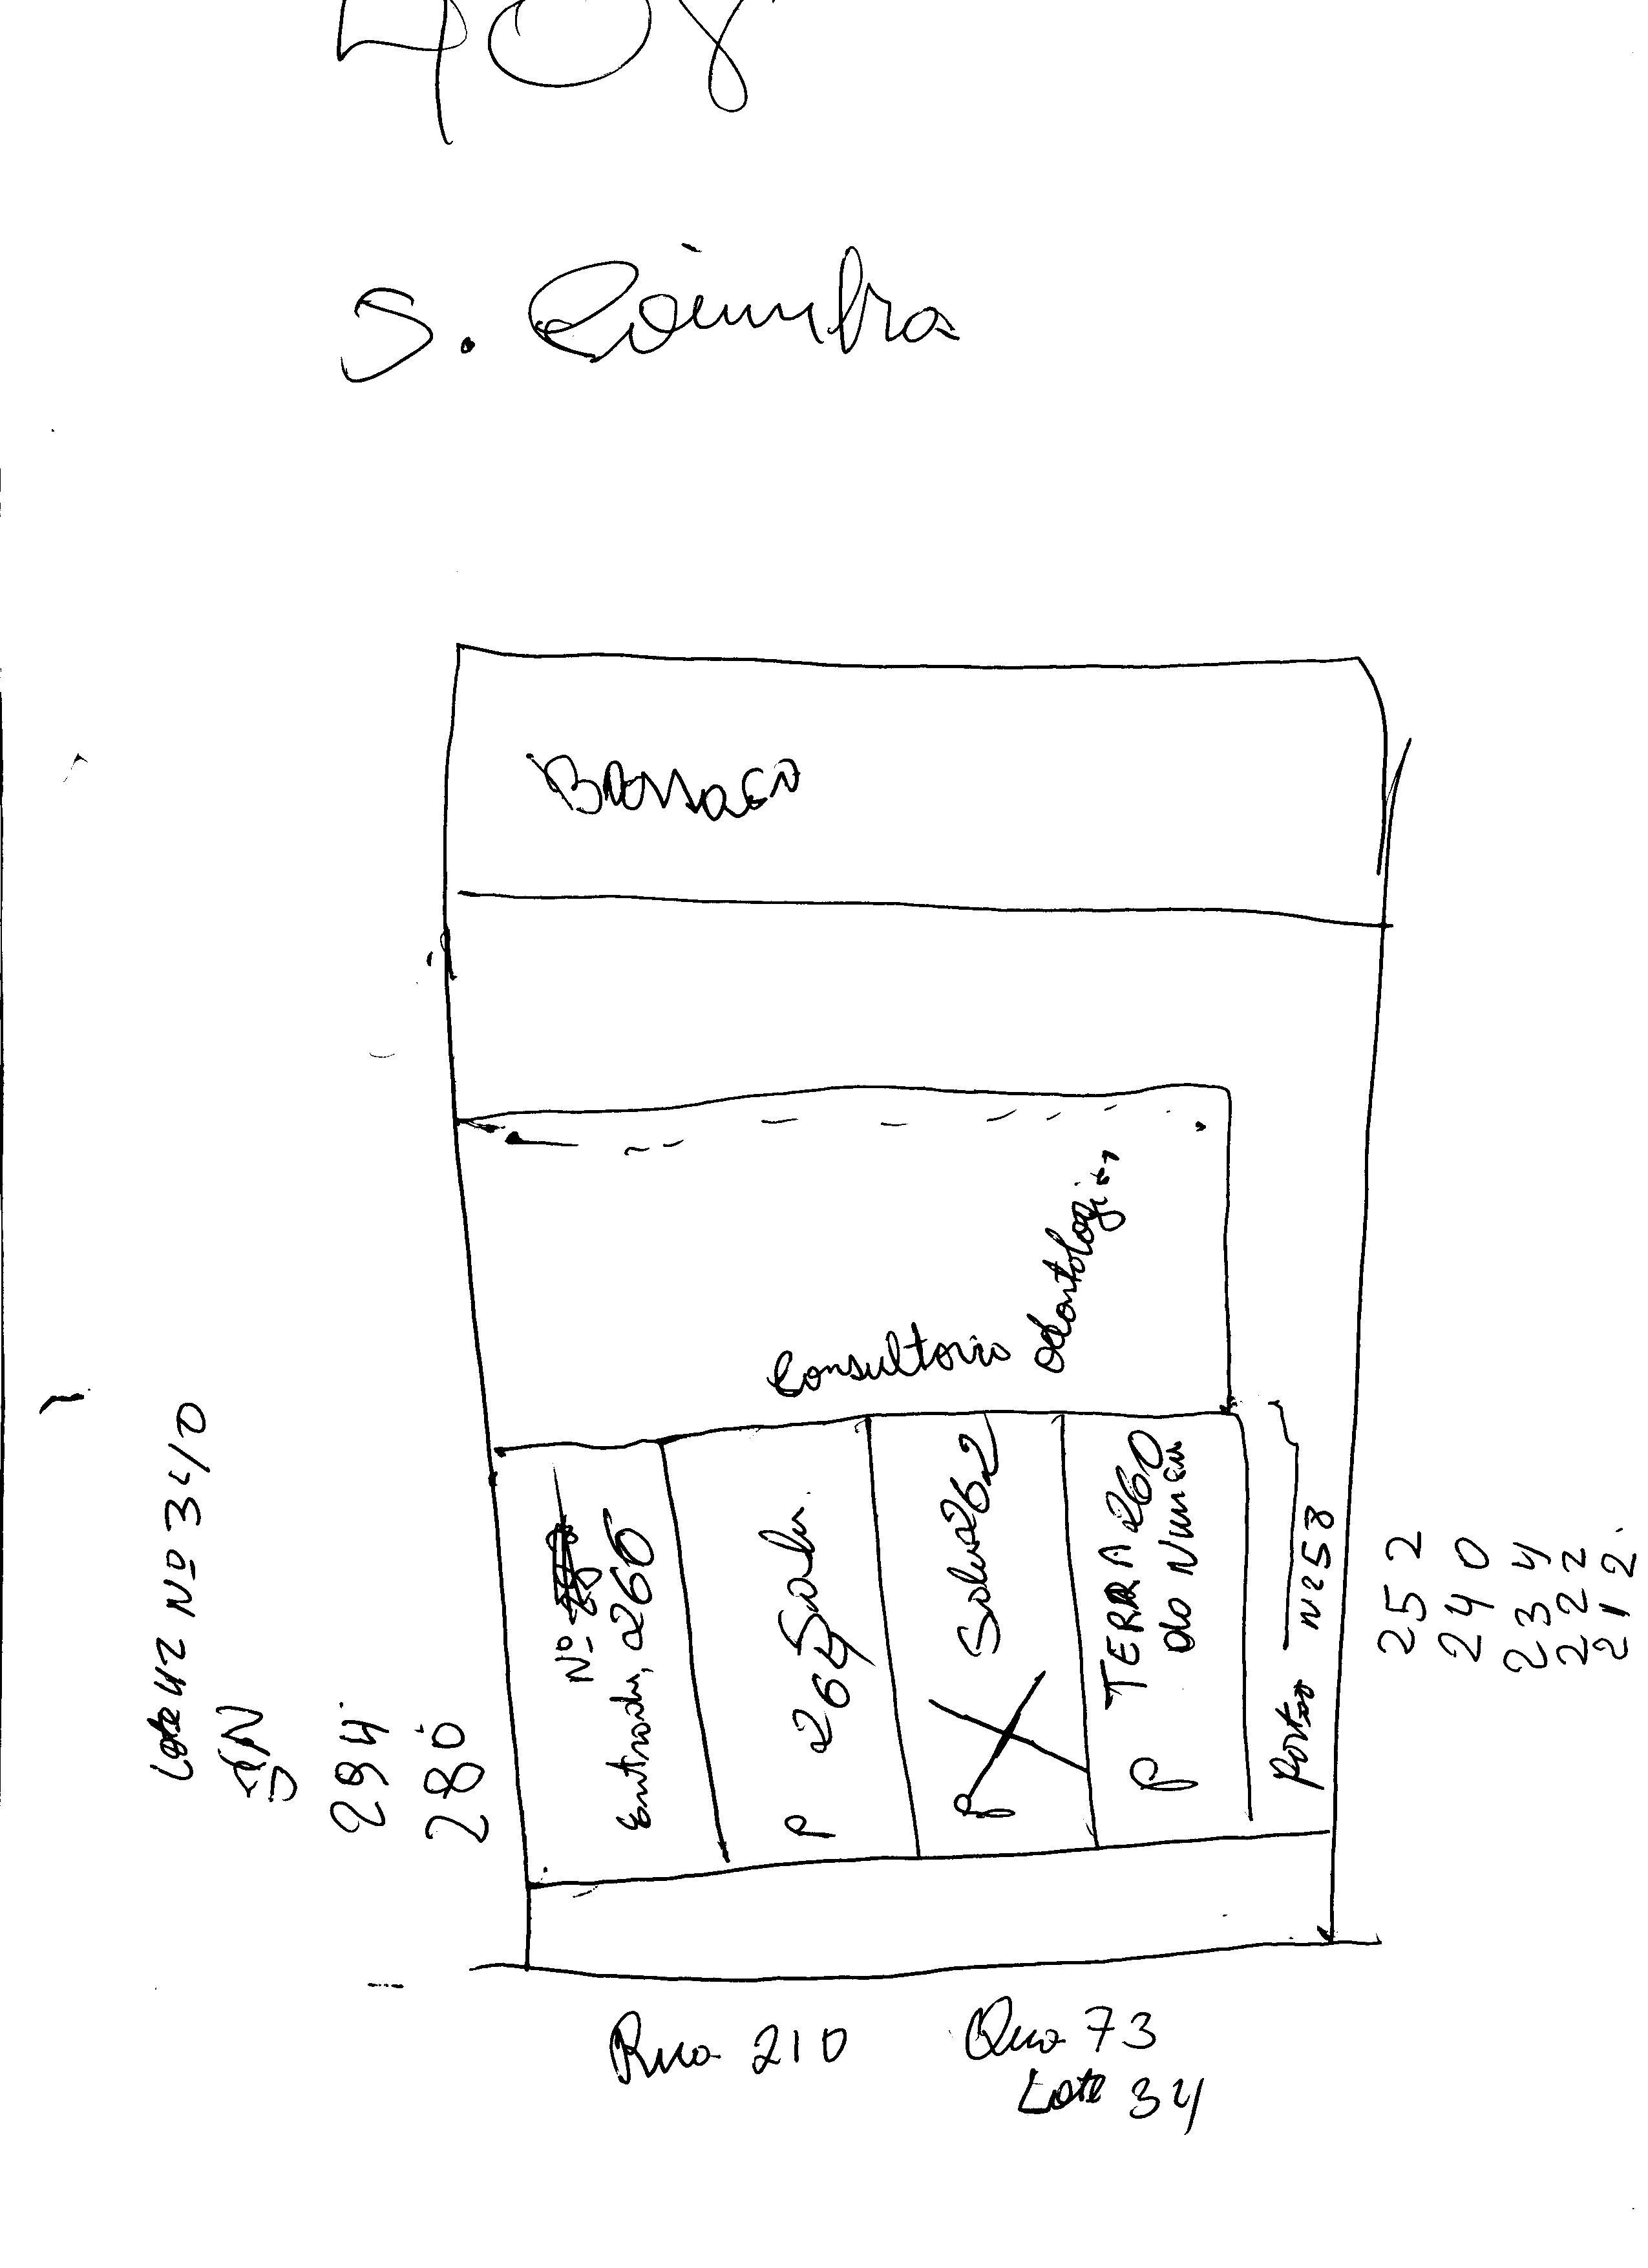 408
S. Coimbra
Consultorio odontologi
Nº
Entrada, 266
P 264 Sala
P Sala 262
P TERRA 260
do Numer
Portão Nº 258
Lote 42 Nº 340
S/N
294
280
252
240
234
222
212
Rua 210 Qua 73
Lote 34